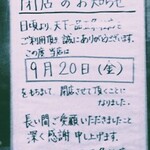 閉店のお知らせ
日頃より、天下一品
ご利用頂き誠にありがとうございます。
この度 当店は
9月20日(金)
をもちまして 閉店させて頂くことに
なりました。
長い間ご愛顧いただきましたこと
深く感謝申し上げます。